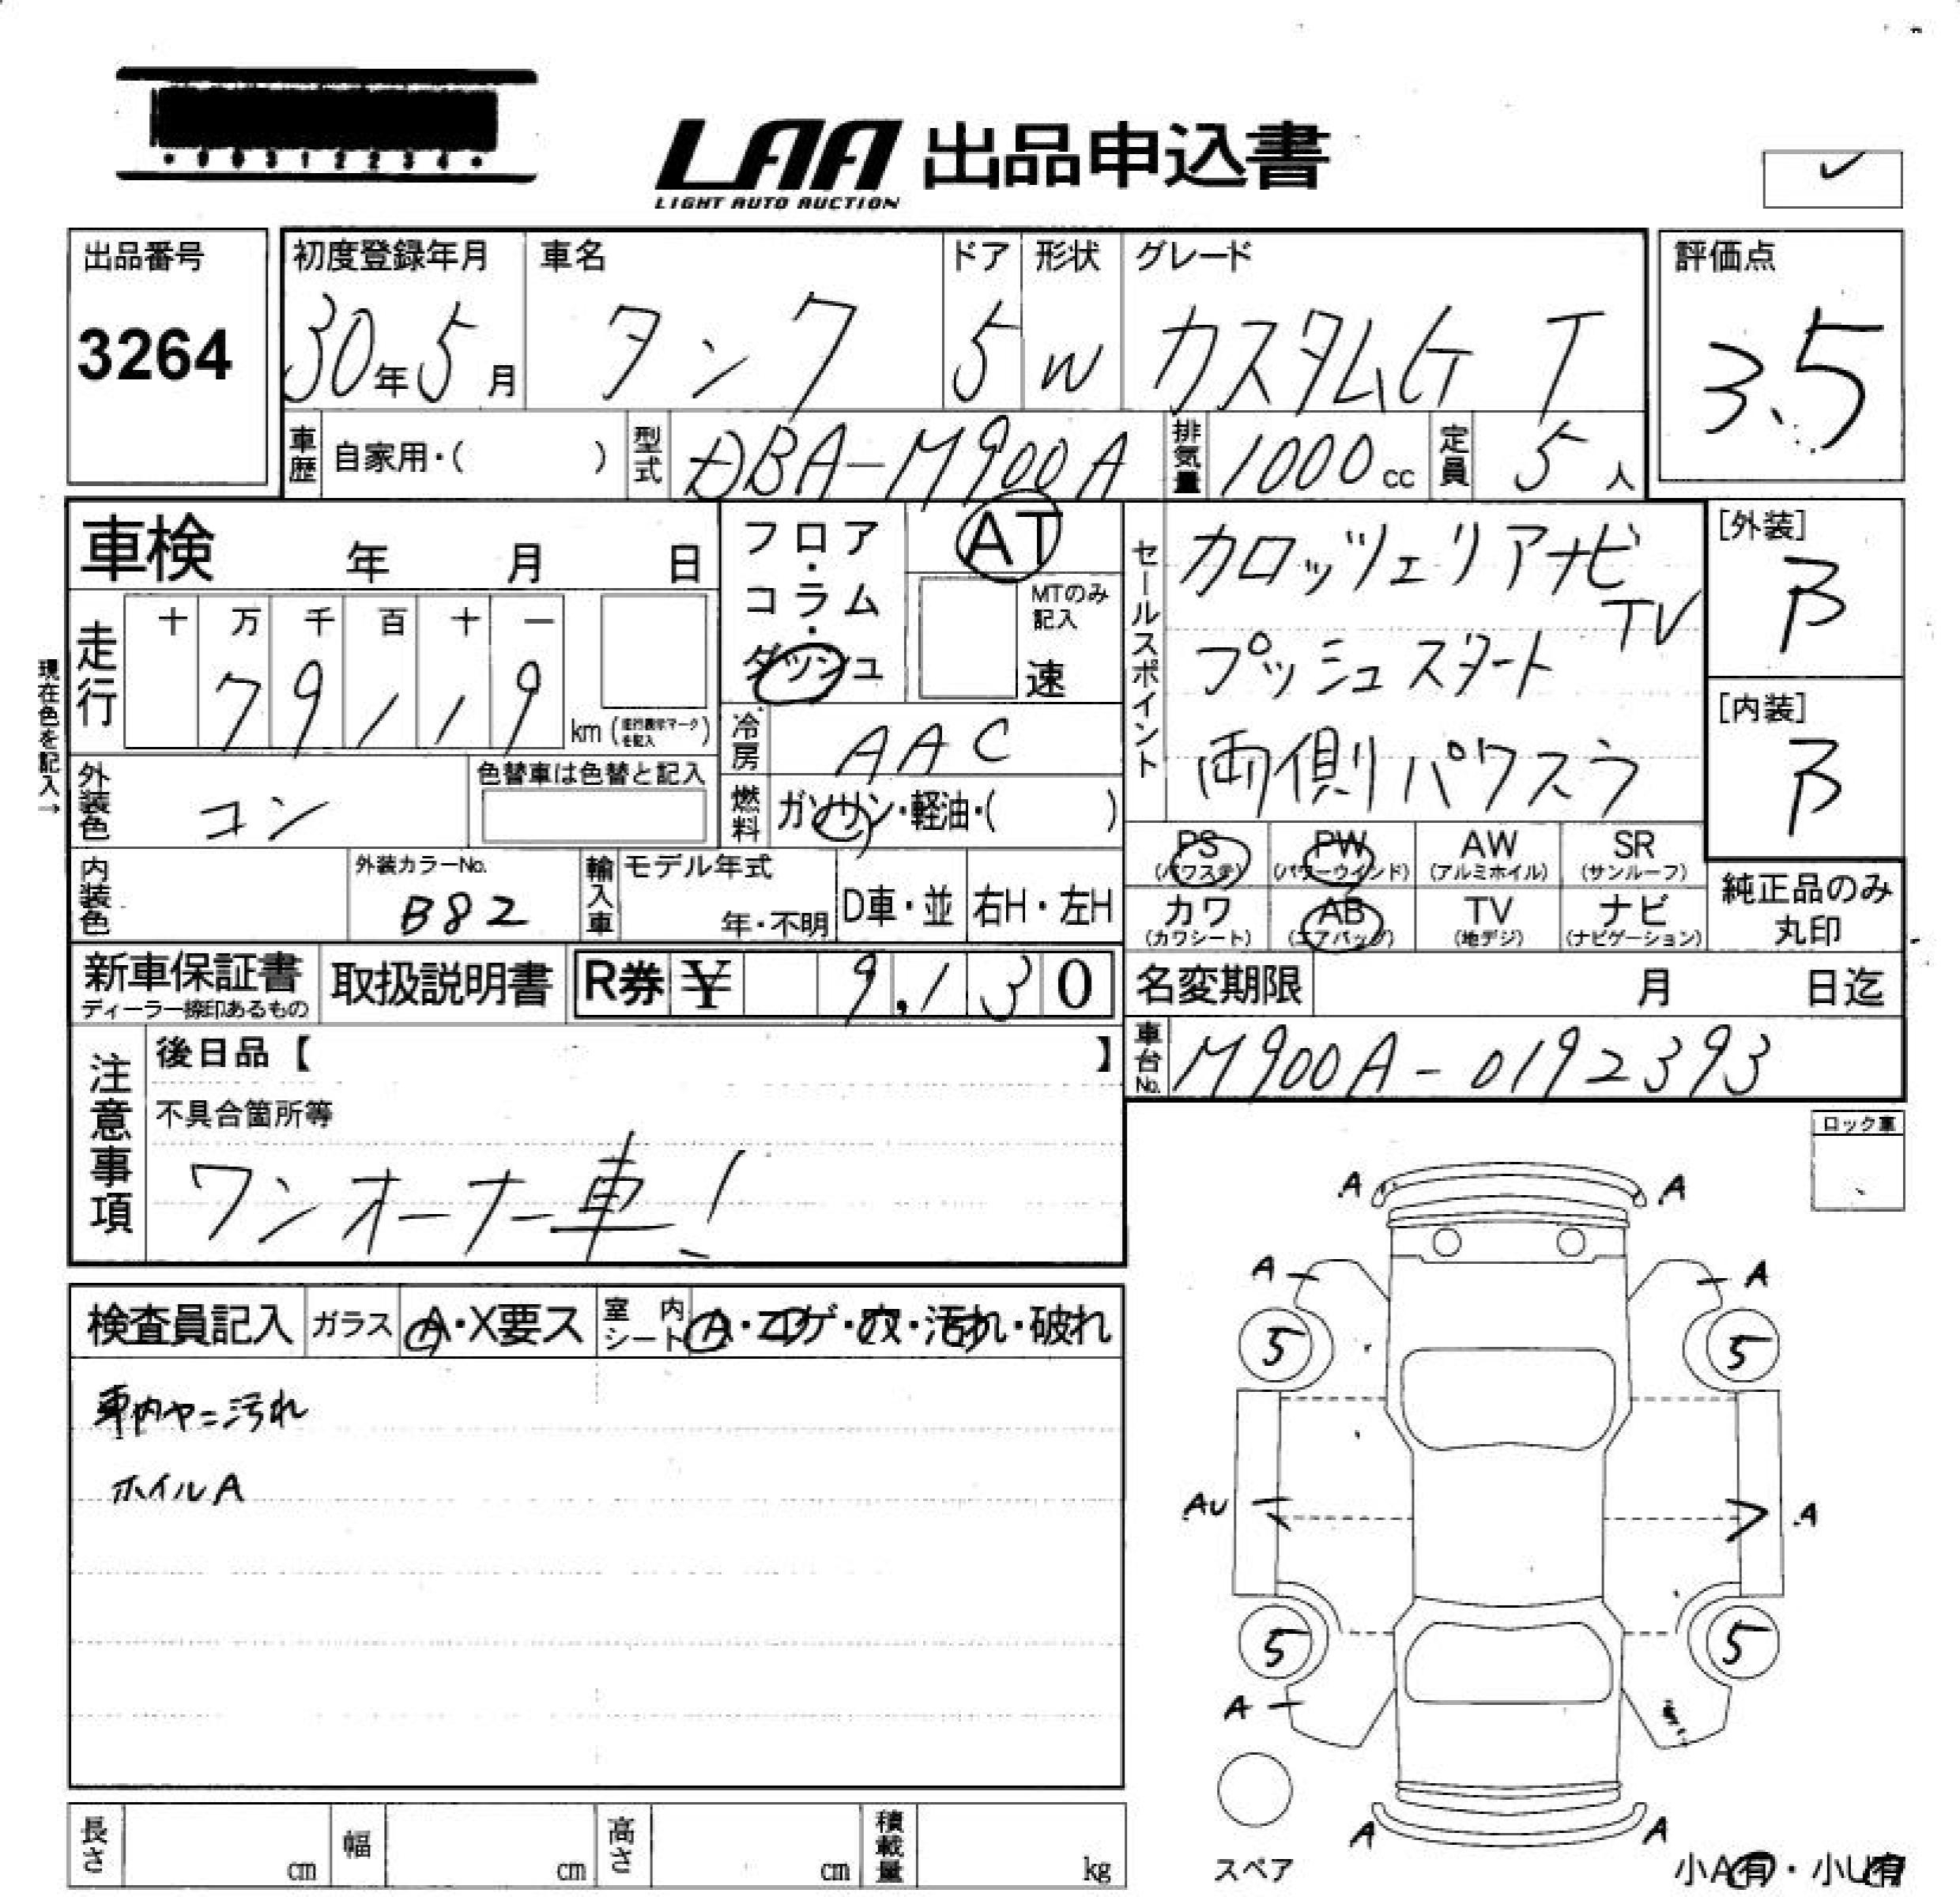 LAA 出品申込書
LIGHT AUTO AUCTION
出品番号
3264
初度登録年月
30年5月
車名
タンク
ドア
5
形状
W
グレード
カスタムG T
評価点
3.5
車歴 自家用・( )
型式 DBA-M900A
排気量 1000cc
定員 5人
車検 年 月 日
フロア・コラム・ダッシュ
AT
MTのみ記入
速
現在色を記入→
走行
十 万 千 百 十 一
7 9 1 1 9
km (走行表示マークを記入)
冷房 AAC
外装色 コン
色替車は色替と記入
燃料 ガソリン・軽油・( )
内装色
外装カラーNo.
B82
輸入車 モデル年式
年・不明
D車・並 右H・左H
セールスポイント
カロッツェリアナビ
TV
プッシュスタート
両側パワスラ
[外装]
B
[内装]
B
PS PW AW SR
(パワステ) (パワーウインド) (アルミホイル) (サンルーフ)
カワ AB TV ナビ
(カワシート) (エアバッグ) (地デジ) (ナビゲーション)
純正品のみ
丸印
新車保証書
ディーラー捺印あるもの
取扱説明書
R券 ¥ 9,130
名変期限 月 日迄
車台No. M900A-0192393
注意事項
後日品【 】
不具合箇所等
ワンオーナー車!
ロック車
検査員記入 ガラス A・X要ス 室内シート A・コゲ・穴・汚れ・破れ
車内ヤニ汚れ
ホイルA
A A
A A
5 5
AU A
5 5
A
A A
スペア
小A有・小U有
長さ cm 幅 cm 高さ cm 積載量 kg